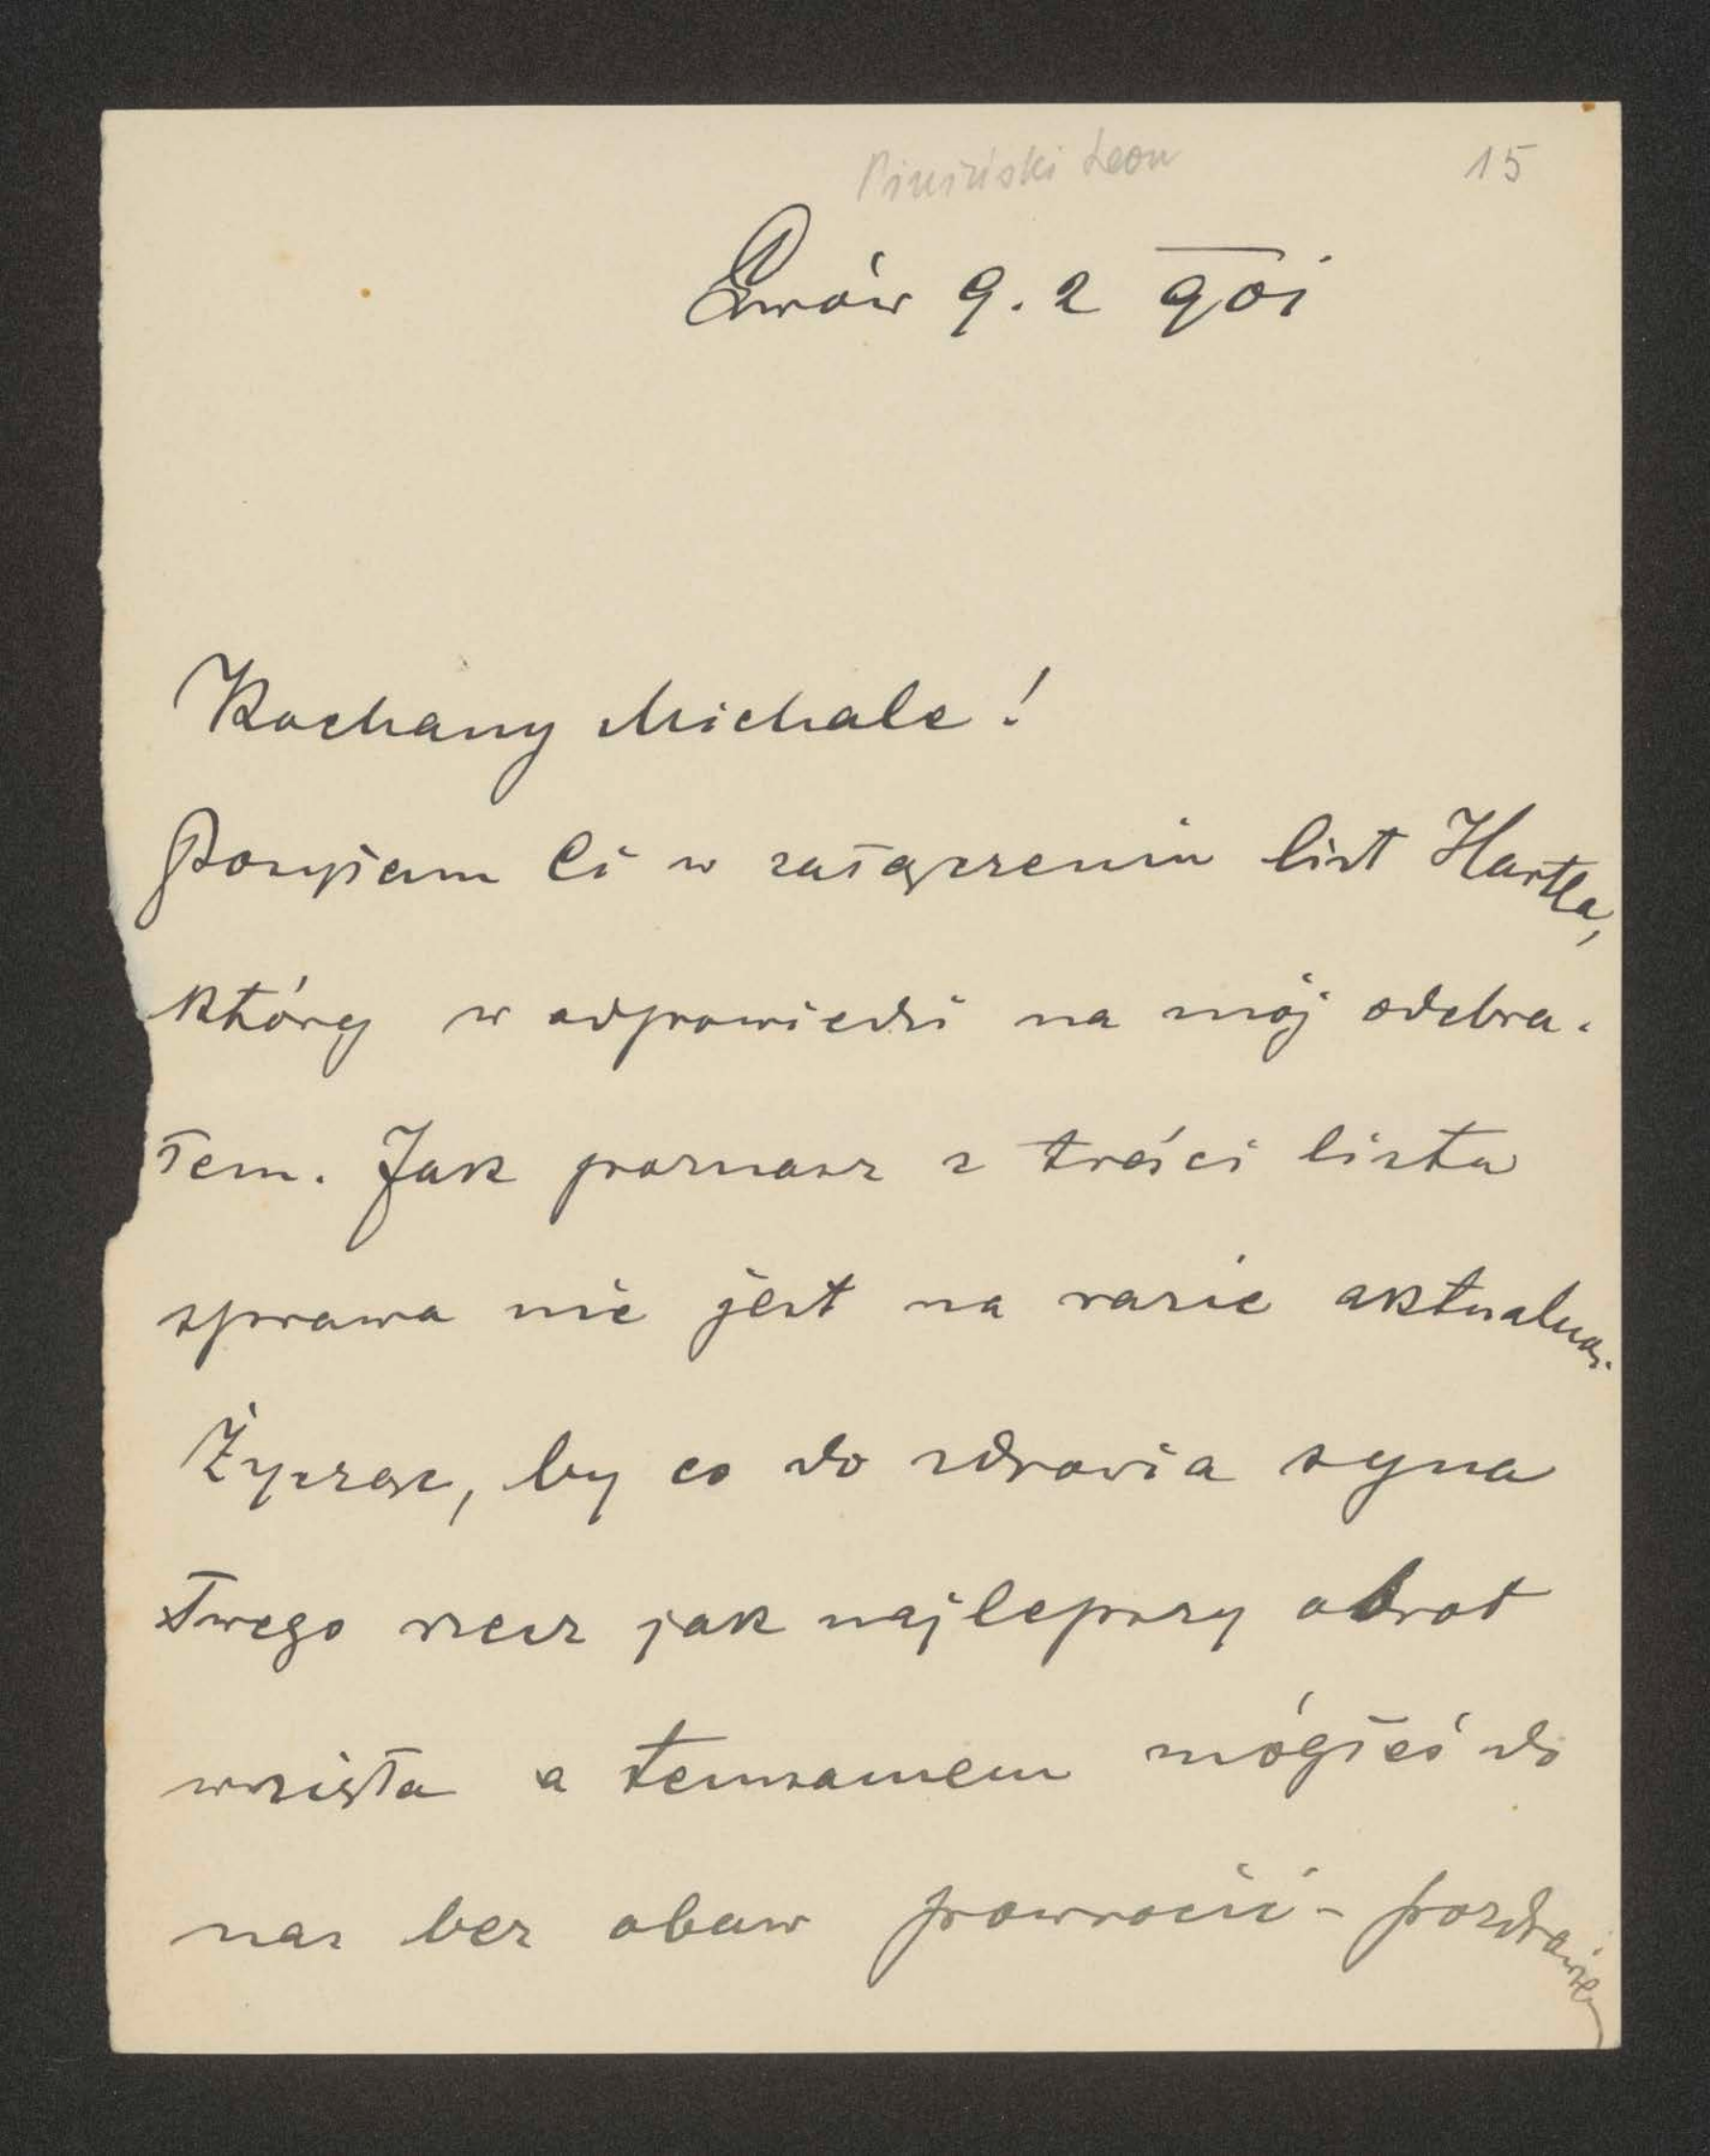 Piniński Leon 15
Lwów 9.2 901
Kochany Michale!
Posyłam Ci w załączeniu list Hartla,
który w odpowiedzi na mój odebra-
łem. Jak poznasz z treści listu
sprawa nie jest na razie aktualną.
Życzę, by co do zdrowia syna
Twego rzecz jak najlepszy obrót
wzięła a temsamem mógłeś do
nas bez obaw powrócić - pozdrawiam